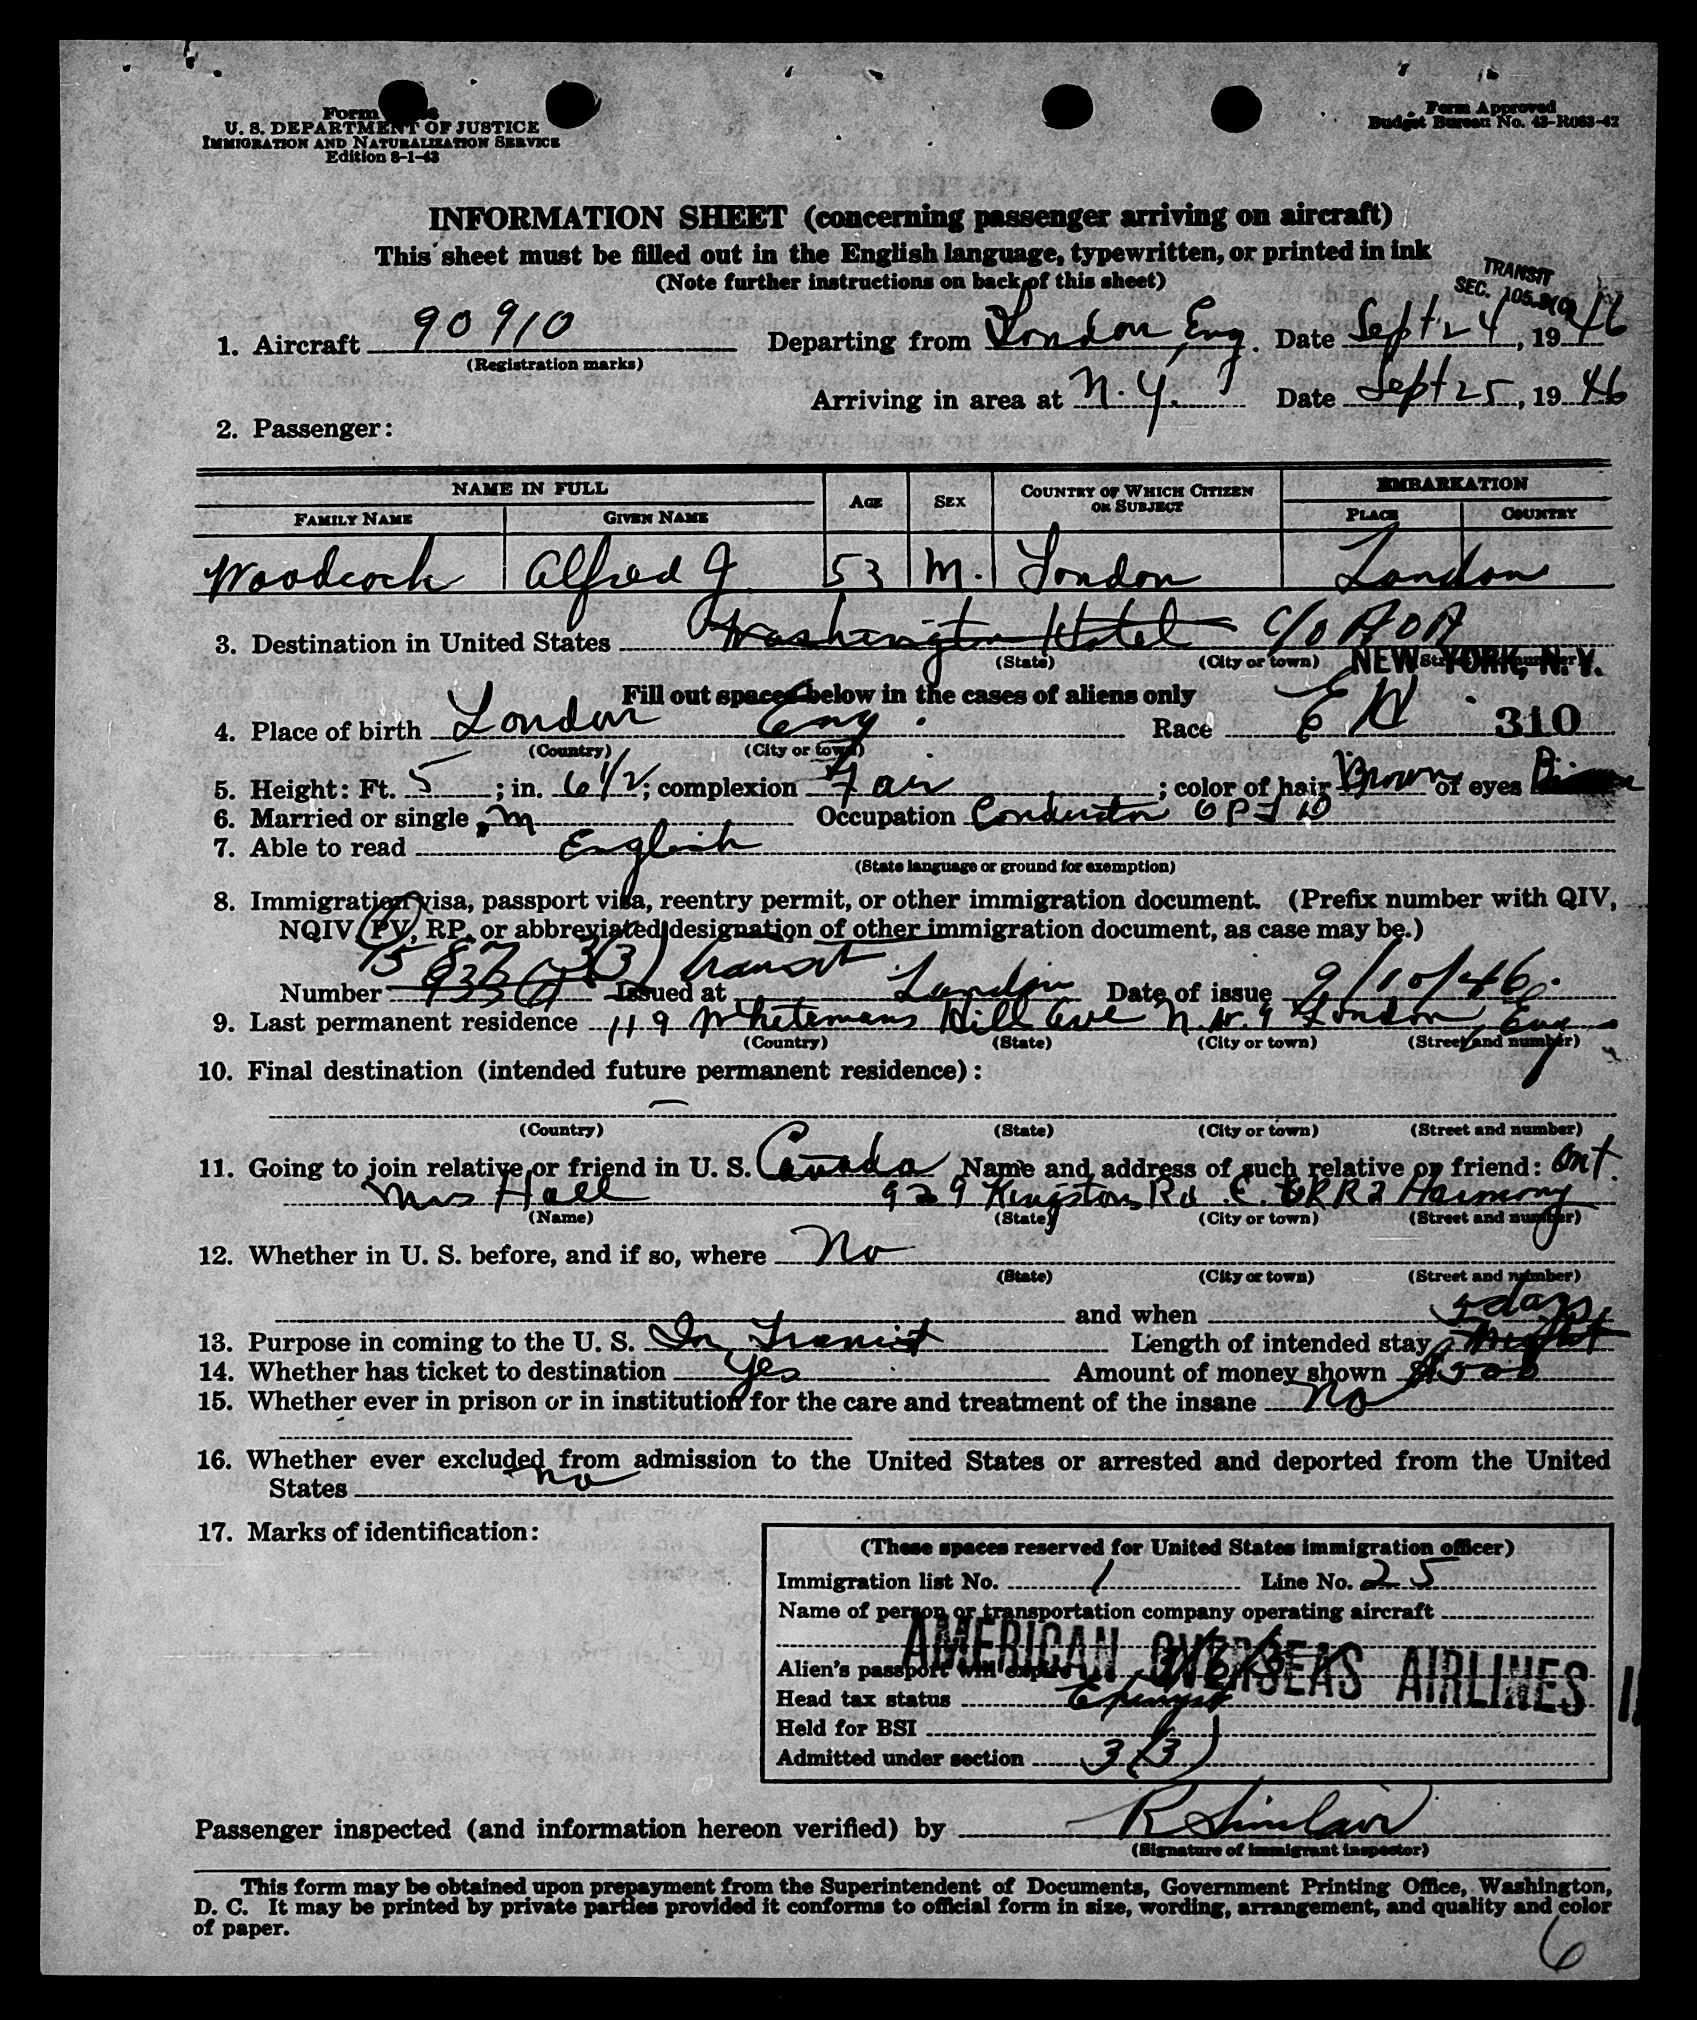 Form
U. S. DEPARTMENT OF JUSTICE
IMMIGRATION AND NATURALIZATION SERVICE
Edition 8-1-43
Form Approved
Budget Bureau No. 43-R063-42
INFORMATION SHEET (concerning passenger arriving on aircraft)
This sheet must be filled out in the English language, typewritten, or printed in ink
(Note further instructions on back of this sheet)
TRANSIT
SEC. 105.3(C)
1. Aircraft 90910 Departing from London, Eng. Date Sept 24, 1946
(Registration marks)
Arriving in area at N.Y. Date Sept 25, 1946
2. Passenger:
NAME IN FULL AGE SEX COUNTRY OF WHICH CITIZEN OR SUBJECT EMBARKATION
FAMILY NAME GIVEN NAME PLACE COUNTRY
Woodcock Alfred J 53 M. London London
3. Destination in United States Washington Hotel c/o AOA
(State) (City or town) NEW YORK, N. Y.
Fill out spaces below in the cases of aliens only
4. Place of birth London Eng. Race 310
(Country) (City or town)
5. Height: Ft. 5; in. 6 1/2; complexion Fair; color of hair Brown of eyes
6. Married or single M Occupation Conductor
7. Able to read English
(State language or ground for exemption)
8. Immigration visa, passport visa, reentry permit, or other immigration document. (Prefix number with QIV,
NQIV, PV, RP, or abbreviated designation of other immigration document, as case may be.)
3(3) transit
Number Issued at London Date of issue 9/10/46.
9. Last permanent residence 119 Whitemans Hill Ave N.W.9 London, Eng
(Country) (State) (City or town) (Street and number)
10. Final destination (intended future permanent residence):
(Country) (State) (City or town) (Street and number)
11. Going to join relative or friend in U. S. Canada Name and address of such relative or friend: Ont.
Mrs Hall 929 Kingston Rd. E. RR2 Harmony
(Name) (State) (City or town) (Street and number)
12. Whether in U. S. before, and if so, where No
(State) (City or town) (Street and number)
and when
5 days
13. Purpose in coming to the U. S. In Transit Length of intended stay night
14. Whether has ticket to destination Yes Amount of money shown
15. Whether ever in prison or in institution for the care and treatment of the insane No
16. Whether ever excluded from admission to the United States or arrested and deported from the United
States no
17. Marks of identification:
(These spaces reserved for United States immigration officer)
Immigration list No. 1 Line No. 25
Name of person or transportation company operating aircraft
AMERICAN OVERSEAS AIRLINES
Alien's passport will expire
Head tax status
Held for BSI
Admitted under section 3(3)
Passenger inspected (and information hereon verified) by R Sinclair
(Signature of immigrant inspector)
This form may be obtained upon prepayment from the Superintendent of Documents, Government Printing Office, Washington,
D. C. It may be printed by private parties provided it conforms to official form in size, wording, arrangement, and quality and color
of paper.
6